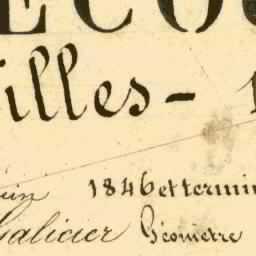 ECO
illes - 1
uin 1846 et termin
Galicier Géomètre